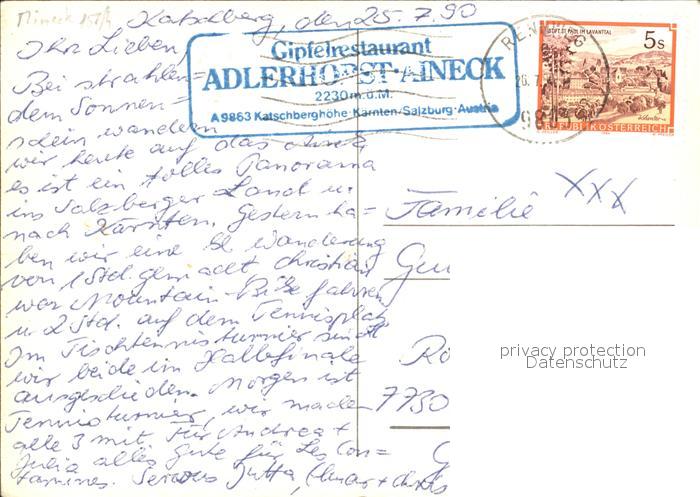 Katschberg, den 25. 7. 90
Ihr Lieben,
Bei strahlen=
dem Sonnen=
schein wandern
wir heute auf das Aineck
es ist ein tolles Panorama
ins Salzberger Land u.
nach Kärnten. Gestern ha=
ben wir eine Wanderung
von 1 Std. gemacht Christian
war Mountain-Bike fahren
u. 2 Std. auf dem Tennisplatz
Im Tischtennisturnier sind
wir beide im Halbfinale
ausgeschieden. Morgen ist
Tennisturnier, wir machen
alle 3 mit. Für Andrea +
Julia alles gute für Les Con=
tamines. Servus Jutta,
Gipfelrestaurant
ADLERHORST·AINECK
2230 m.ü.M.
A 9863 Katschberghöhe·Kärnten/Salzburg·Austria
RENNWEG
STIFT ST. PAUL IM LAVANTTAL
5s
REPUBLIK ÖSTERREICH
Familie XXX
Gu
Rö
7730
privacy protection
Datenschutz